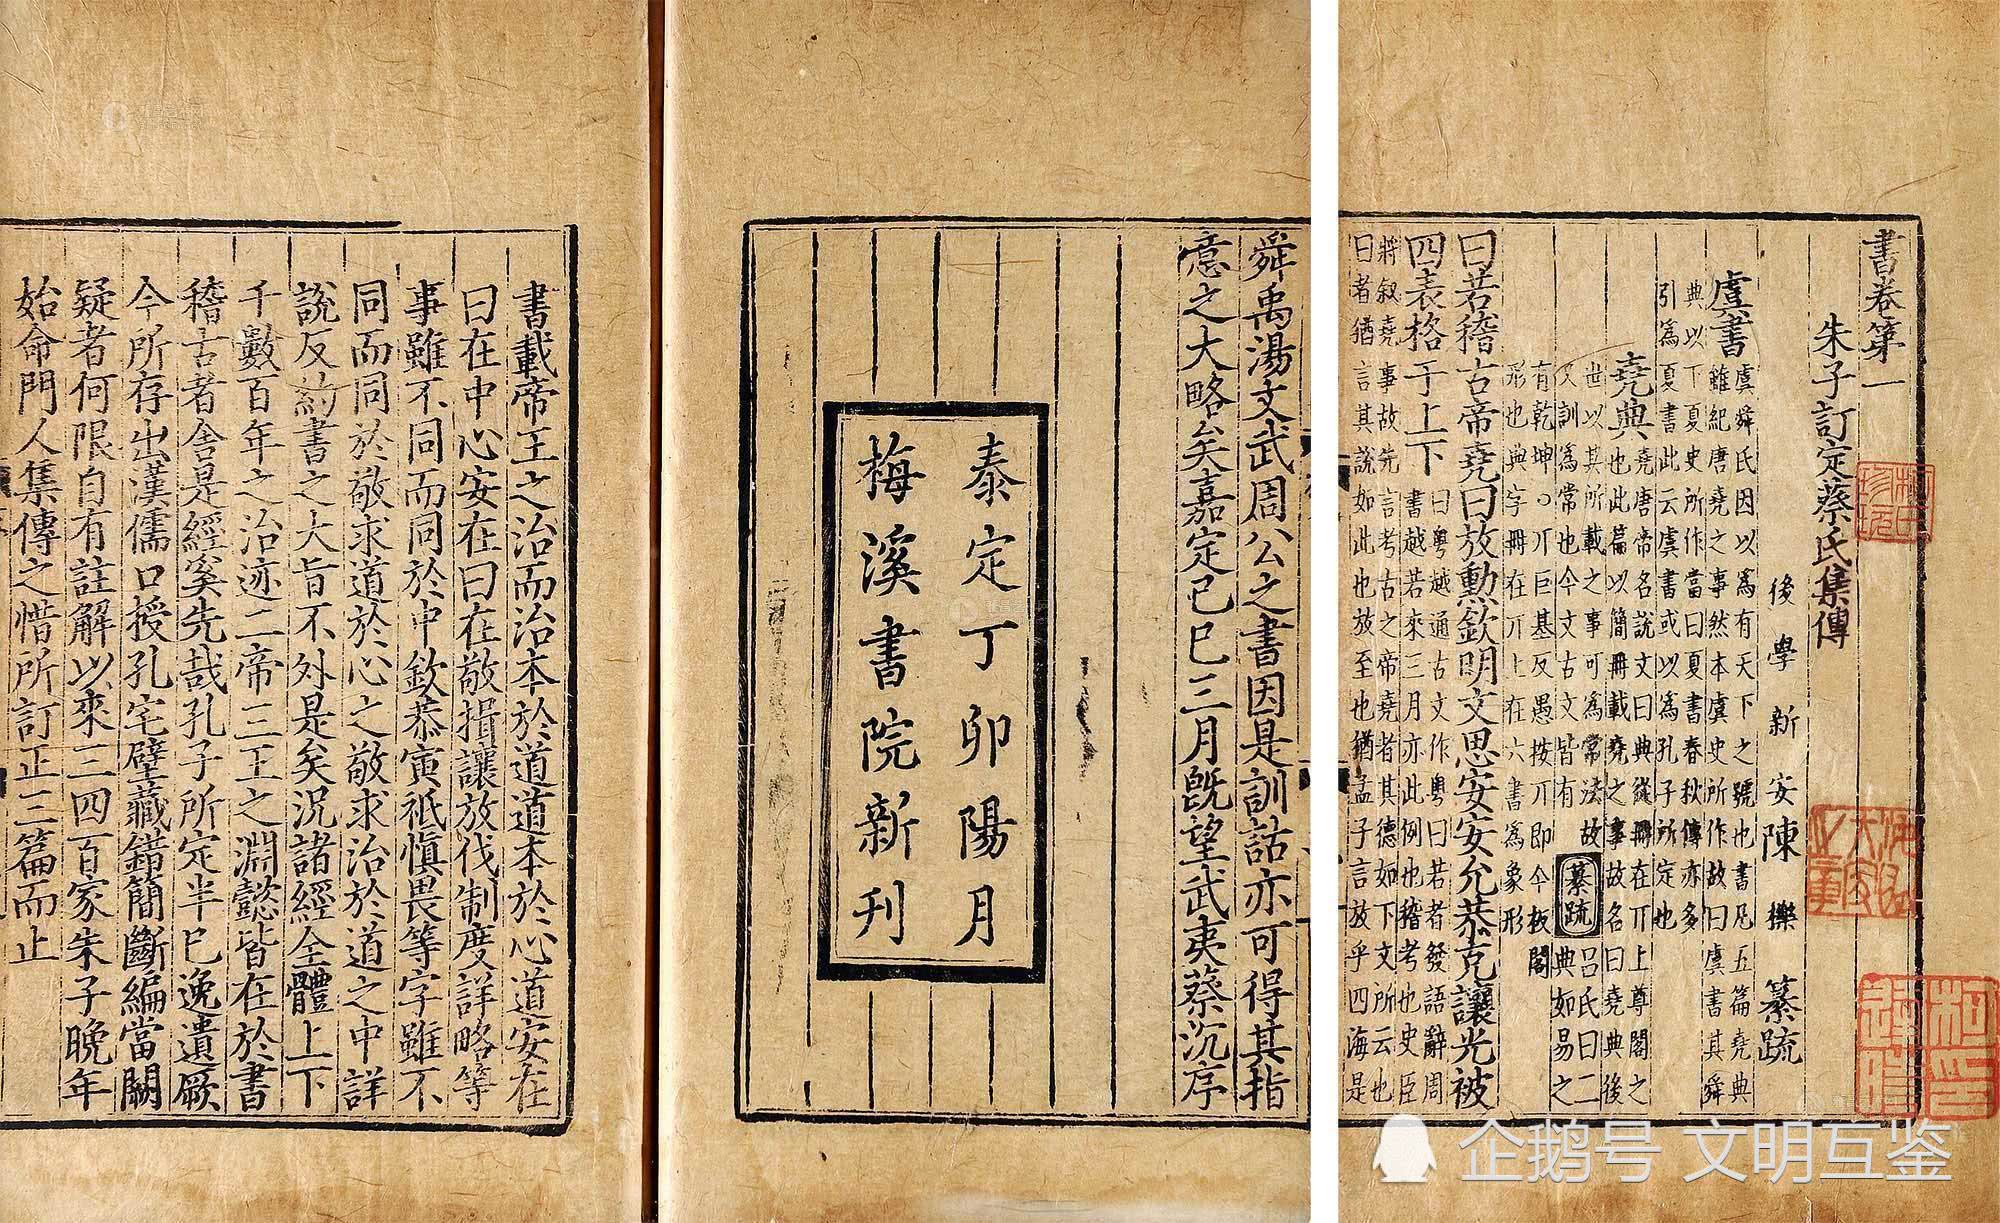 書卷第一
朱子訂定蔡氏集傳
後學新安陳櫟纂疏
虞書
虞舜氏因以為有天下之號也書凡五篇堯典
雖紀唐堯之事然本虞史所作故曰虞書其舜
典以下夏史所作當曰夏書春秋傳亦多
引為夏書此云虞書或以為孔子所定也
堯典
堯唐帝名說文曰典從冊在丌上尊閣之
也此篇以簡冊載堯之事故名曰堯典後
世以其所載之事可為常法故
又訓為常也今文古文皆有
纂疏
呂氏曰二
典如易之
有乾坤○丌巨基反愚按丌即今板閣
形也典字冊在丌上在六書為象形
曰若稽古帝堯曰放勳欽明文思安安允恭克讓光被
四表格于上下
曰粵越通古文作粵曰若者發語辭周
書越若來三月亦此例也稽考也史臣
將叙堯事故先言考古之帝堯者其德如下文所云也
曰者猶言其說如此也放至也猶孟子言放乎四海是
舜禹湯文武周公之書因是訓詁亦可得其指
意之大略矣嘉定己巳三月旣望武夷蔡沉序
泰定丁卯陽月
梅溪書院新刊
書載帝王之治而治本於道道本於心道安在
曰在中心安在曰在敬揖讓放伐制度詳略等
事雖不同而同於中欽恭寅祗慎畏等字雖不
同而同於敬求道於心之敬求治於道之中詳
說反約書之大旨不外是矣況諸經全體上下
千數百年之治迹二帝三王之淵懿皆在於書
稽古者舍是經奚先哉孔子所定半已逸遺厥
今所存出漢儒口授孔宅壁藏錯簡斷編當闕
疑者何限自有註解以來三四百家朱子晚年
始命門人集傳之惜所訂正三篇而止
企鹅号 文明互鉴